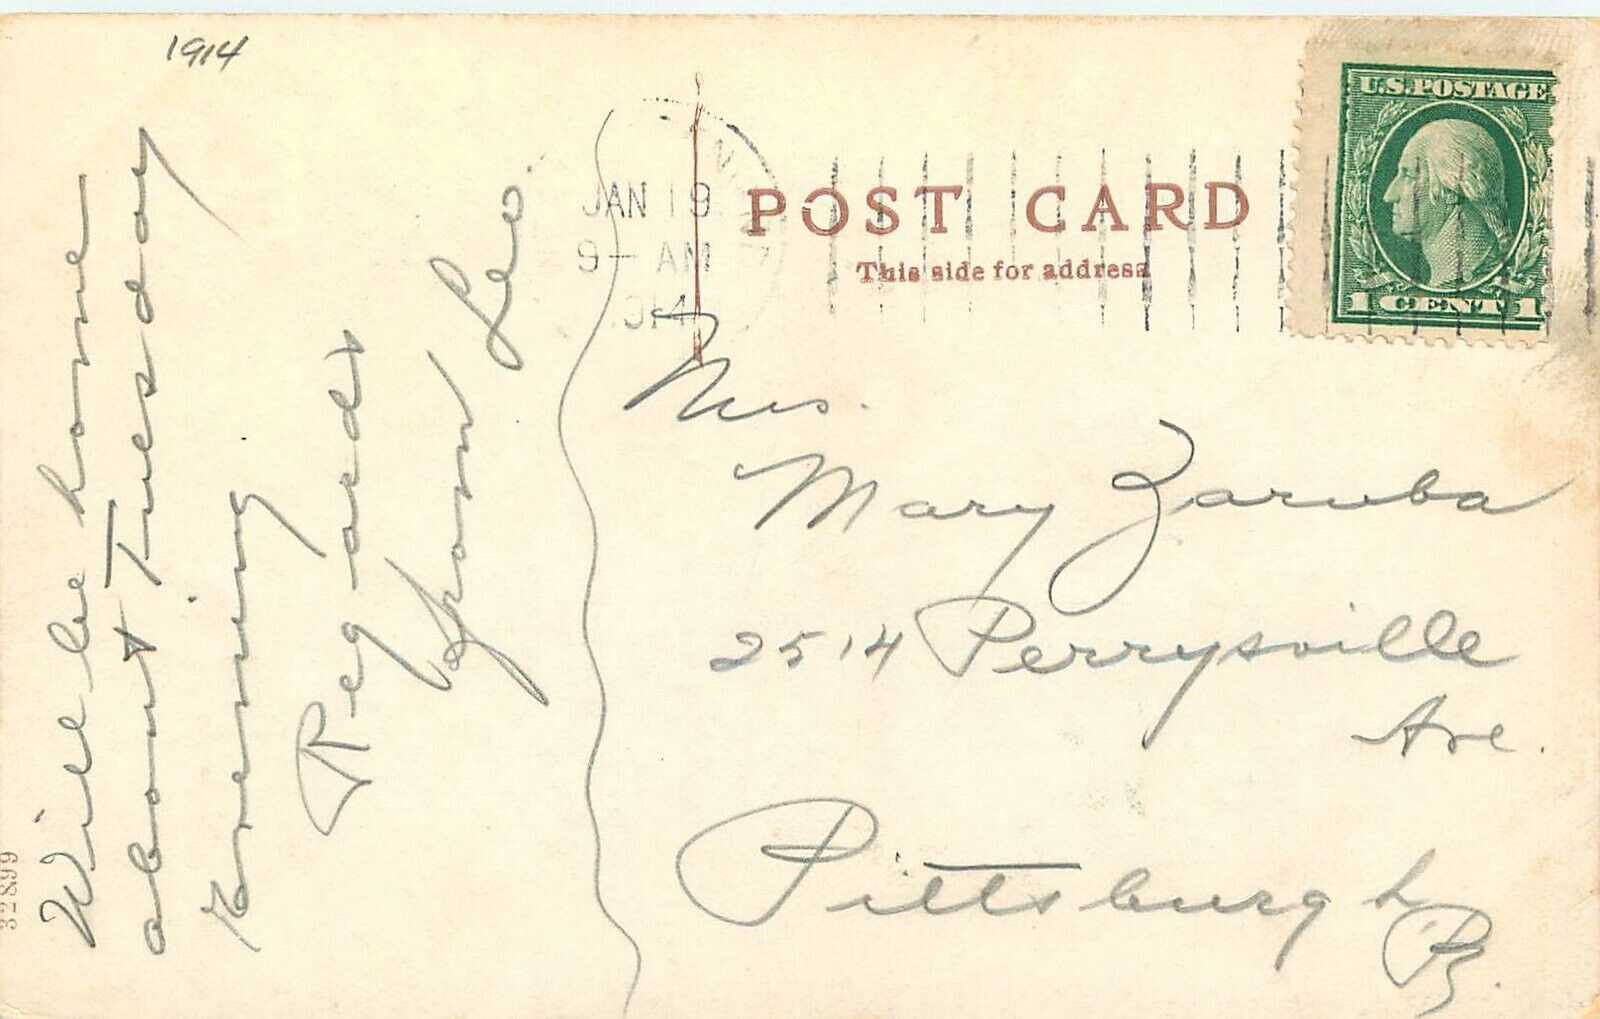 1914
Will be home
about Tuesday
evening
Regards
from Leo.
32899
JAN 19
9- AM
1914
POST CARD
This side for address
U.S. POSTAGE
1 CENT 1
Mrs.
Mary Zaruba
2514 Perrysville
Ave.
Pittsburgh
Pa.